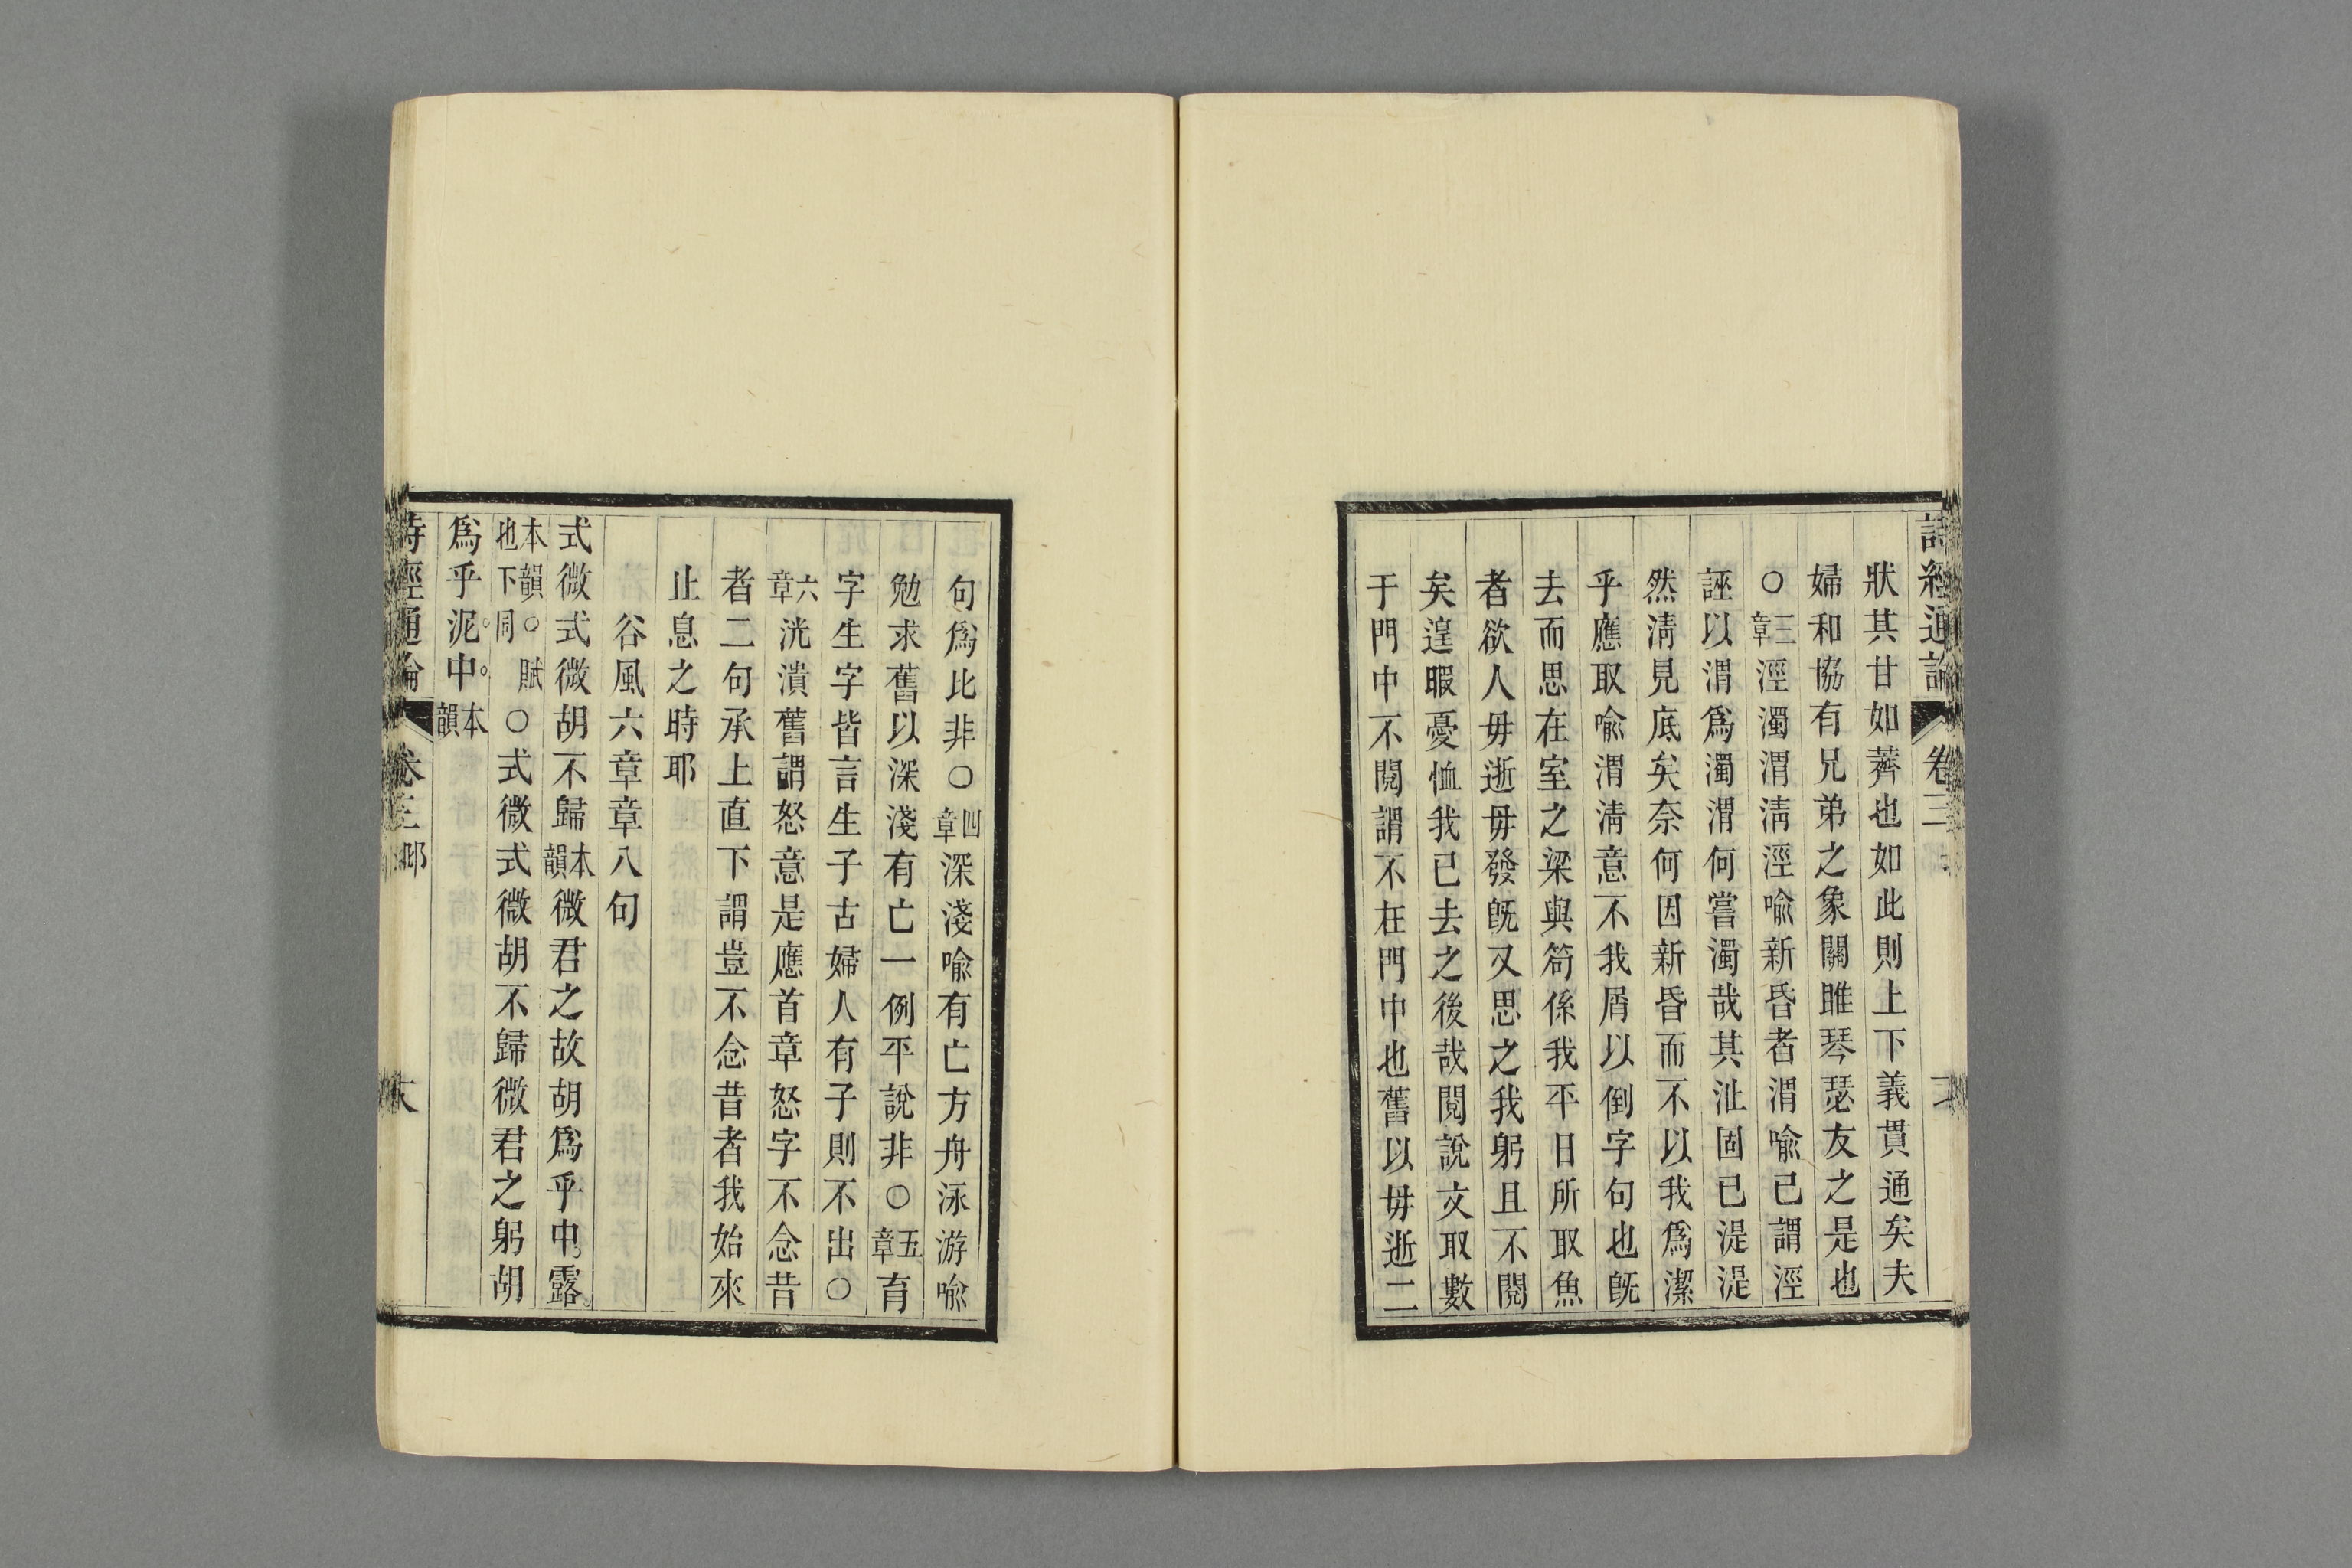 詩經通論 卷三
狀其甘如薺也如此則上下義貫通矣夫
婦和協有兄弟之象關雎琴瑟友之是也
○三章涇濁渭淸涇喻新昏者渭喻己謂涇
誣以渭爲濁渭何嘗濁哉其沚固已湜湜
然淸見底矣奈何因新昏而不以我爲潔
乎應取喻渭淸意不我屑以倒字句也旣
去而思在室之梁與笱係我平日所取魚
者欲人毋逝毋發旣又思之我躬且不閱
矣遑暇憂恤我已去之後哉閱說文取數
于門中不閱謂不在門中也舊以毋逝二
句爲比非○四章深淺喻有亡方舟泳游喻
勉求舊以深淺有亡一例平說非○五章育
字生字皆言生子古婦人有子則不出○
六章洸潰舊謂怒意是應首章怒字不念昔
者二句承上直下謂豈不念昔者我始來
止息之時耶
谷風六章章八句
式微式微胡不歸本韻微君之故胡爲乎中露
本韻○賦也下同○式微式微胡不歸微君之躬胡
爲乎泥中本韻
詩經通論 卷三 邶